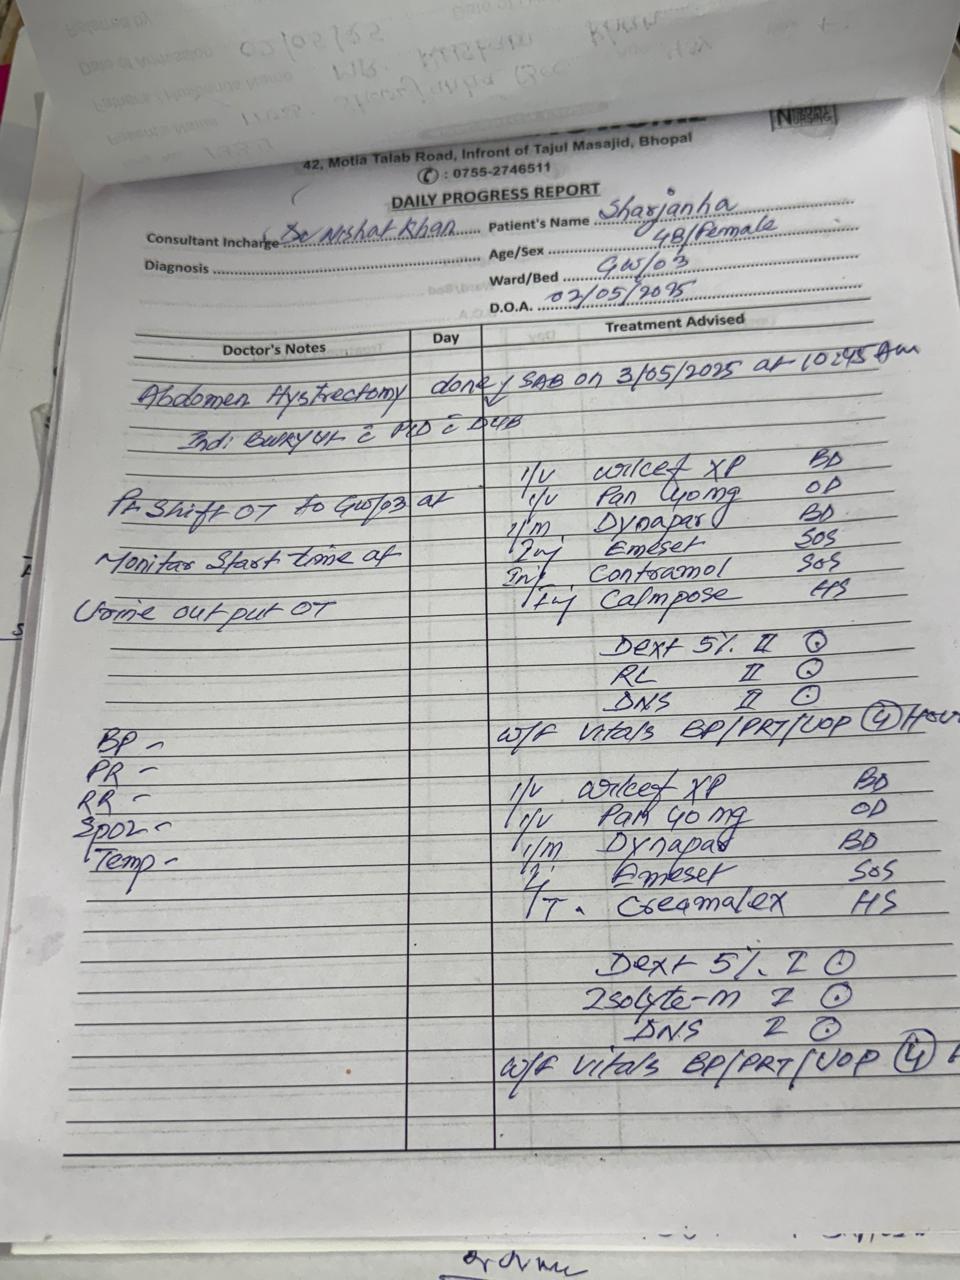 42, Motia Talab Road, Infront of Tajul Masajid, Bhopal
: 0755-2746511
DAILY PROGRESS REPORT
Consultant Incharge Dr Nishat Khan Patient's Name Sharjanha
Diagnosis Age/Sex 48/Female
Ward/Bed GW/03
D.O.A. 02/05/2025
Doctor's Notes Day Treatment Advised
Abdomen Hystrectomy done SAB on 3/05/2025 at 10:45 Am
Indi: Bulky Ut c̄ PID c̄ DUB
I/V XP BD
Pt Shift OT to GW/03 at I/V Pan 40mg OD
I/m Dynapar BD
Monitar Start time at Inj Emeset SOS
Inj. Contramol SOS
Urine out put OT Inj Calmpose HS
Dext 5% II ⊙
RL II ⊙
DNS II ⊙
BP - w/f Vitals BP/PRT/UOP ④ Hour
PR -
RR - I/V XP BD
SpO2 - I/V Pan 40 mg OD
Temp - I/m Dynapar BD
Emeset SOS
T. Creamalex HS
Dext 5% I ⊙
Isolyte-m I ⊙
DNS I ⊙
w/f Vitals BP/PRT/UOP ④